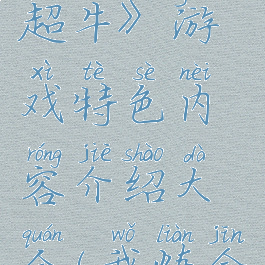 超牛》游
xì tè sè nèi
戏特色内
róng jiè shào dà
容介绍大
quán wǒ liàn jīn
全（我炼金